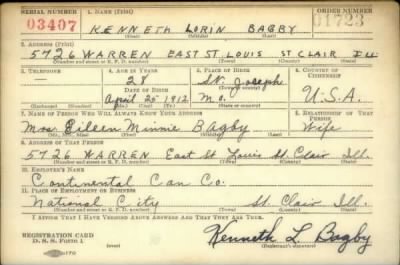 SERIAL NUMBER 1. NAME (Print) ORDER NUMBER
03407 KENNETH LORIN BAGBY 01723
(First) (Middle) (Last)
2. ADDRESS (Print)
5726 WARREN EAST ST LOUIS ST CLAIR ILL
(Number and street or R. F. D. number) (Town) (County) (State)
3. TELEPHONE 4. AGE IN YEARS 5. PLACE OF BIRTH 6. COUNTRY OF CITIZENSHIP
— 28 St. Joseph
DATE OF BIRTH (Town or county)
April 25 1912 Mo. U.S.A.
(Exchange) (Number) (Mo.) (Day) (Yr.) (State or country)
7. NAME OF PERSON WHO WILL ALWAYS KNOW YOUR ADDRESS 8. RELATIONSHIP OF THAT PERSON
Mrs. Eileen Minnie Bagby Wife
(Mr., Mrs., Miss) (First) (Middle) (Last)
9. ADDRESS OF THAT PERSON
5726 WARREN East St Louis St. Clair Ill.
(Number and street or R. F. D. number) (Town) (County) (State)
10. EMPLOYER'S NAME
Continental Can Co.
11. PLACE OF EMPLOYMENT OR BUSINESS
National City St. Clair Ill.
(Number and street or R. F. D. number) (Town) (County) (State)
I AFFIRM THAT I HAVE VERIFIED ABOVE ANSWERS AND THAT THEY ARE TRUE.
REGISTRATION CARD
D. S. S. FORM 1 Kenneth L. Bagby
(over) (Registrant's signature)